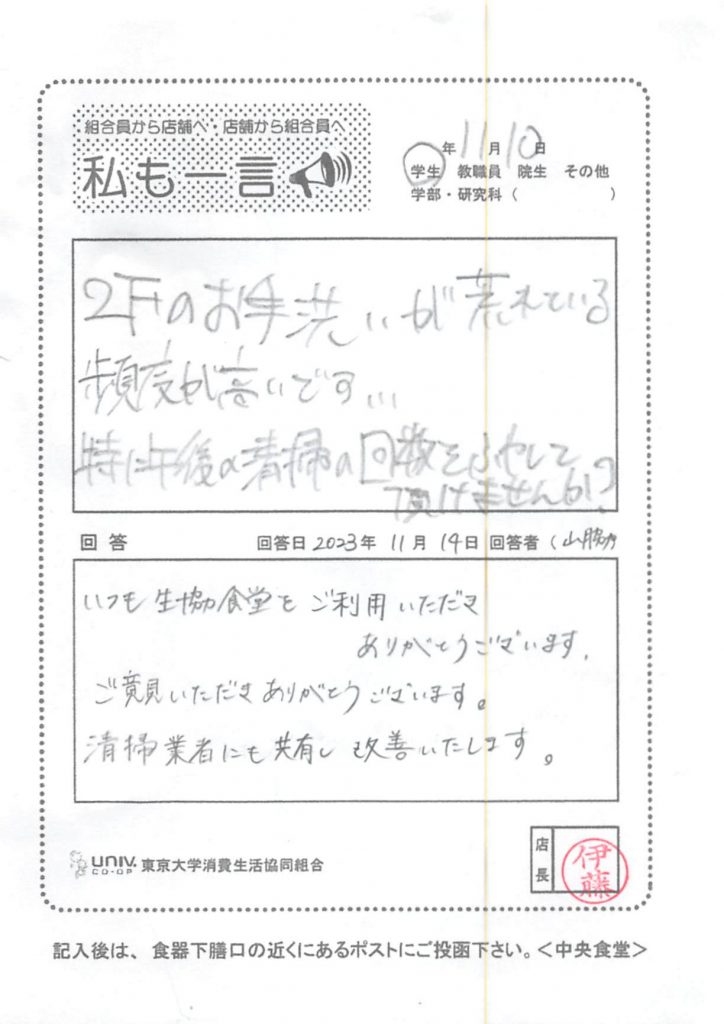 組合員から店舗へ・店舗から組合員へ
私も一言
年11月10日
学生 教職員 院生 その他
学部・研究科（ ）
2Fのお手洗いが荒れている
頻度が高いです...
特に午後の清掃の回数をふやして
頂けませんか?
回答 回答日2023年 11月 14日 回答者（山脇
いつも生協食堂をご利用いただき
ありがとうございます。
ご意見いただきありがとうございます。
清掃業者にも共有し改善いたします。
UNIV. CO-OP 東京大学消費生活協同組合
店長
伊藤
記入後は、食器下膳口の近くにあるポストにご投函下さい。＜中央食堂＞